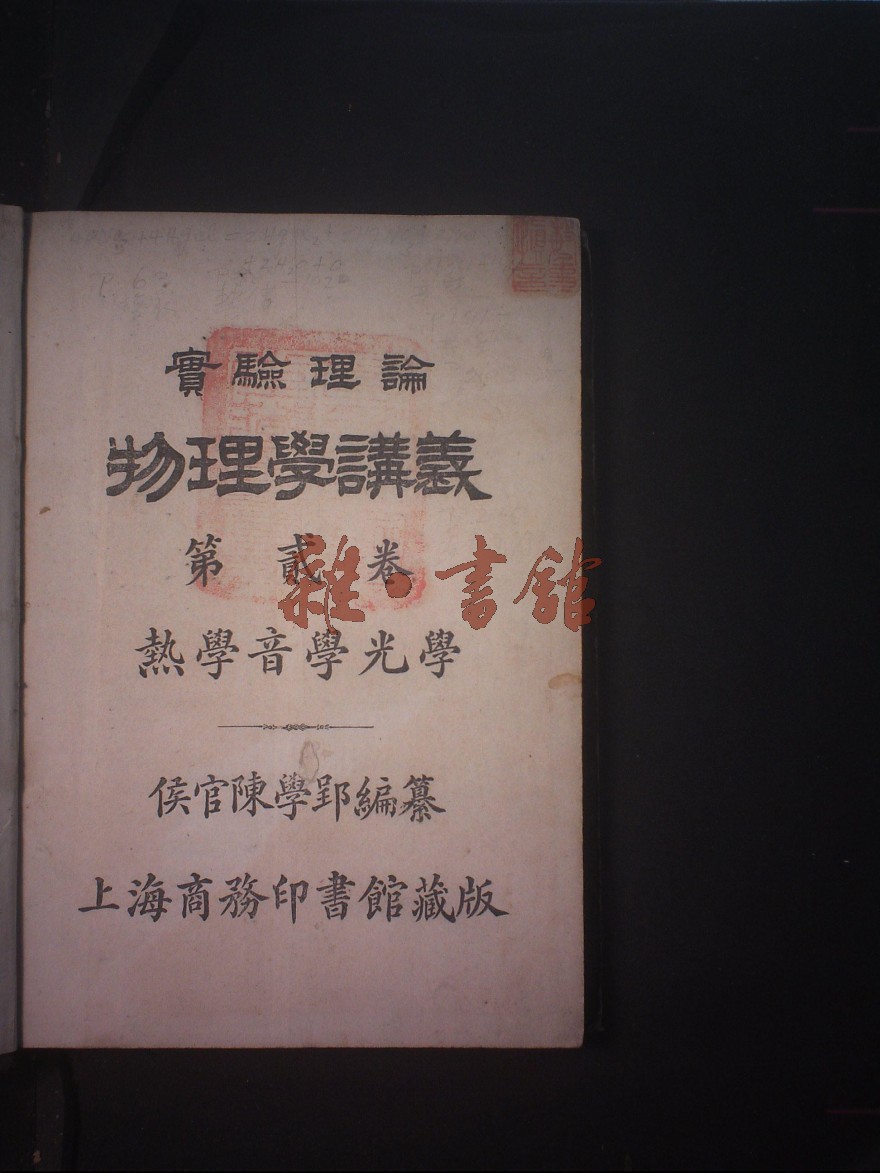 實驗理論
物理學講義
第貳卷
雜·書館
熱學音學光學
侯官陳學郢編纂
上海商務印書館藏版